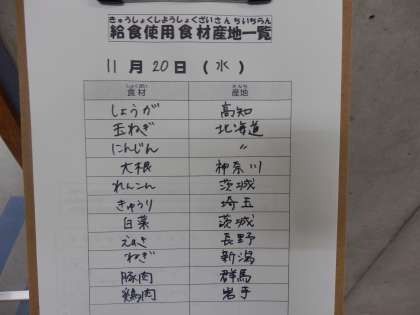 きゅうしょくしようしょくざいさんちいちらん
給食使用食材産地一覧
11月20日(水)
しょくざい さんち
食材 産地
しょうが 高知
玉ねぎ 北海道
にんじん 〃
大根 神奈川
れんこん 茨城
きゅうり 埼玉
白菜 茨城
えのき 長野
ねぎ 新潟
豚肉 群馬
鶏肉 岩手